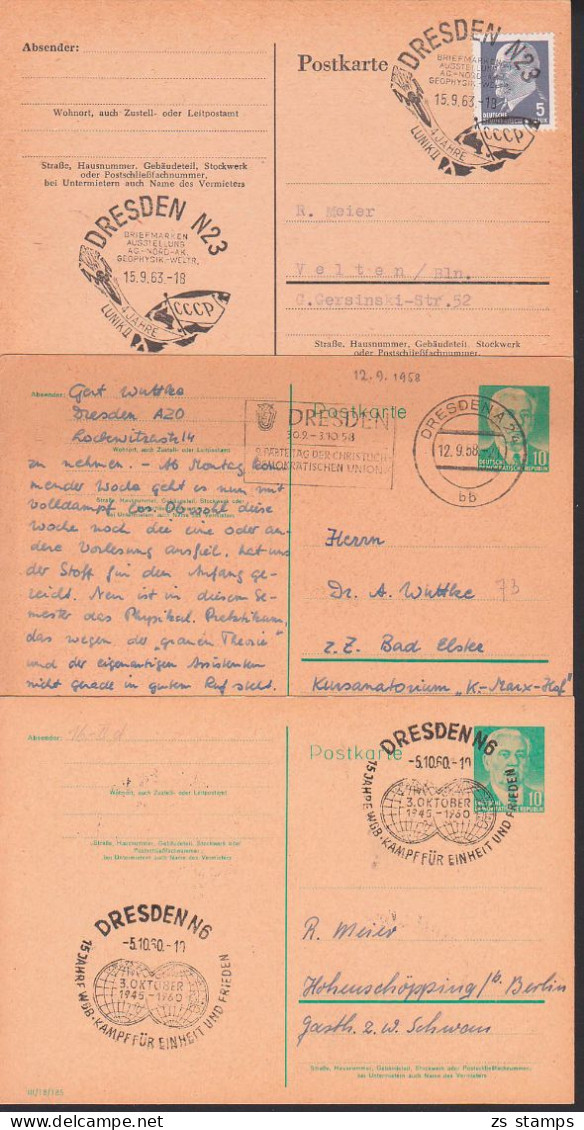 Absender:
Wohnort, auch Zustell- oder Leitpostamt
Straße, Hausnummer, Gebäudeteil, Stockwerk
oder Postschließfachnummer,
bei Untermietern auch Name des Vermieters
Postkarte
DRESDEN N23
BRIEFMARKEN
AUSSTELLUNG
AG.-NORD-AK.
GEOPHYSIK.-WELTR.
15.9.63.-18
4 JAHRE
LUNIK II
CCCP
5
DEUTSCHE
DRESDEN N23
BRIEFMARKEN
AUSSTELLUNG
AG.-NORD-AK.
GEOPHYSIK.-WELTR.
15.9.63.-18
4 JAHRE
LUNIK II
CCCP
R. Meier
Velten/Bln.
C.Gersinski-Str.52
Straße, Hausnummer, Gebäudeteil, Stockwerk
oder Postschließfachnummer,
12.9.1958
Absender: Gert Wuttke
Dresden A20
Lockwitzstr. 14
Wohnort, auch Zustell- oder Leitpostamt
zu nehmen. – Ab Montag kom-
mender Woche geht es nun mit
Volldampf los. Obwohl diese
Woche noch die eine oder an-
dere Vorlesung ausfiel, hat uns
der Stoff für den Anfang ge-
reicht. Neu ist in diesem Se-
mester das Physikal. Praktikum,
das wegen der „grauen Theorie"
und der eigenartigen Assistenten
nicht gerade in gutem Ruf steht.
Postkarte
DRESDEN
30.9.-3.10.58
9. PARTEITAG DER CHRISTLICH-
DEMOKRATISCHEN UNION
DRESDEN A 24
12.9.58
bb
DEUTSCHE
DEMOKRATISCHE REPUBLIK
10
Herrn
Dr. A. Wuttke
73
z. Z. Bad Elster
Kursanatorium „K.-Marx-Hof"
Absender: 16-II d
Wohnort, auch Zustell- oder Leitpostamt
Straße, Hausnummer, Gebäudeteil, Stockwerk oder
Postschließfachnummer,
bei Untermietern auch Name des Vermieters
Postkarte
DRESDEN N6
-5.10.60.-19
3. OKTOBER
1945 - 1960
15 JAHRE WGB · KAMPF FÜR EINHEIT UND FRIEDEN
DEUTSCHE
DEMOKRATISCHE REPUBLIK
10
DRESDEN N6
-5.10.60.-19
3. OKTOBER
1945 - 1960
15 JAHRE WGB · KAMPF FÜR EINHEIT UND FRIEDEN
R. Meier
Hohenschöpping/b. Berlin
Gasth. z. w. Schwan
Straße, Hausnummer, Gebäudeteil, Stockwerk oder Postschließfachnummer,
bei Untermietern auch Name des Vermieters
III/18/185
zs stamps